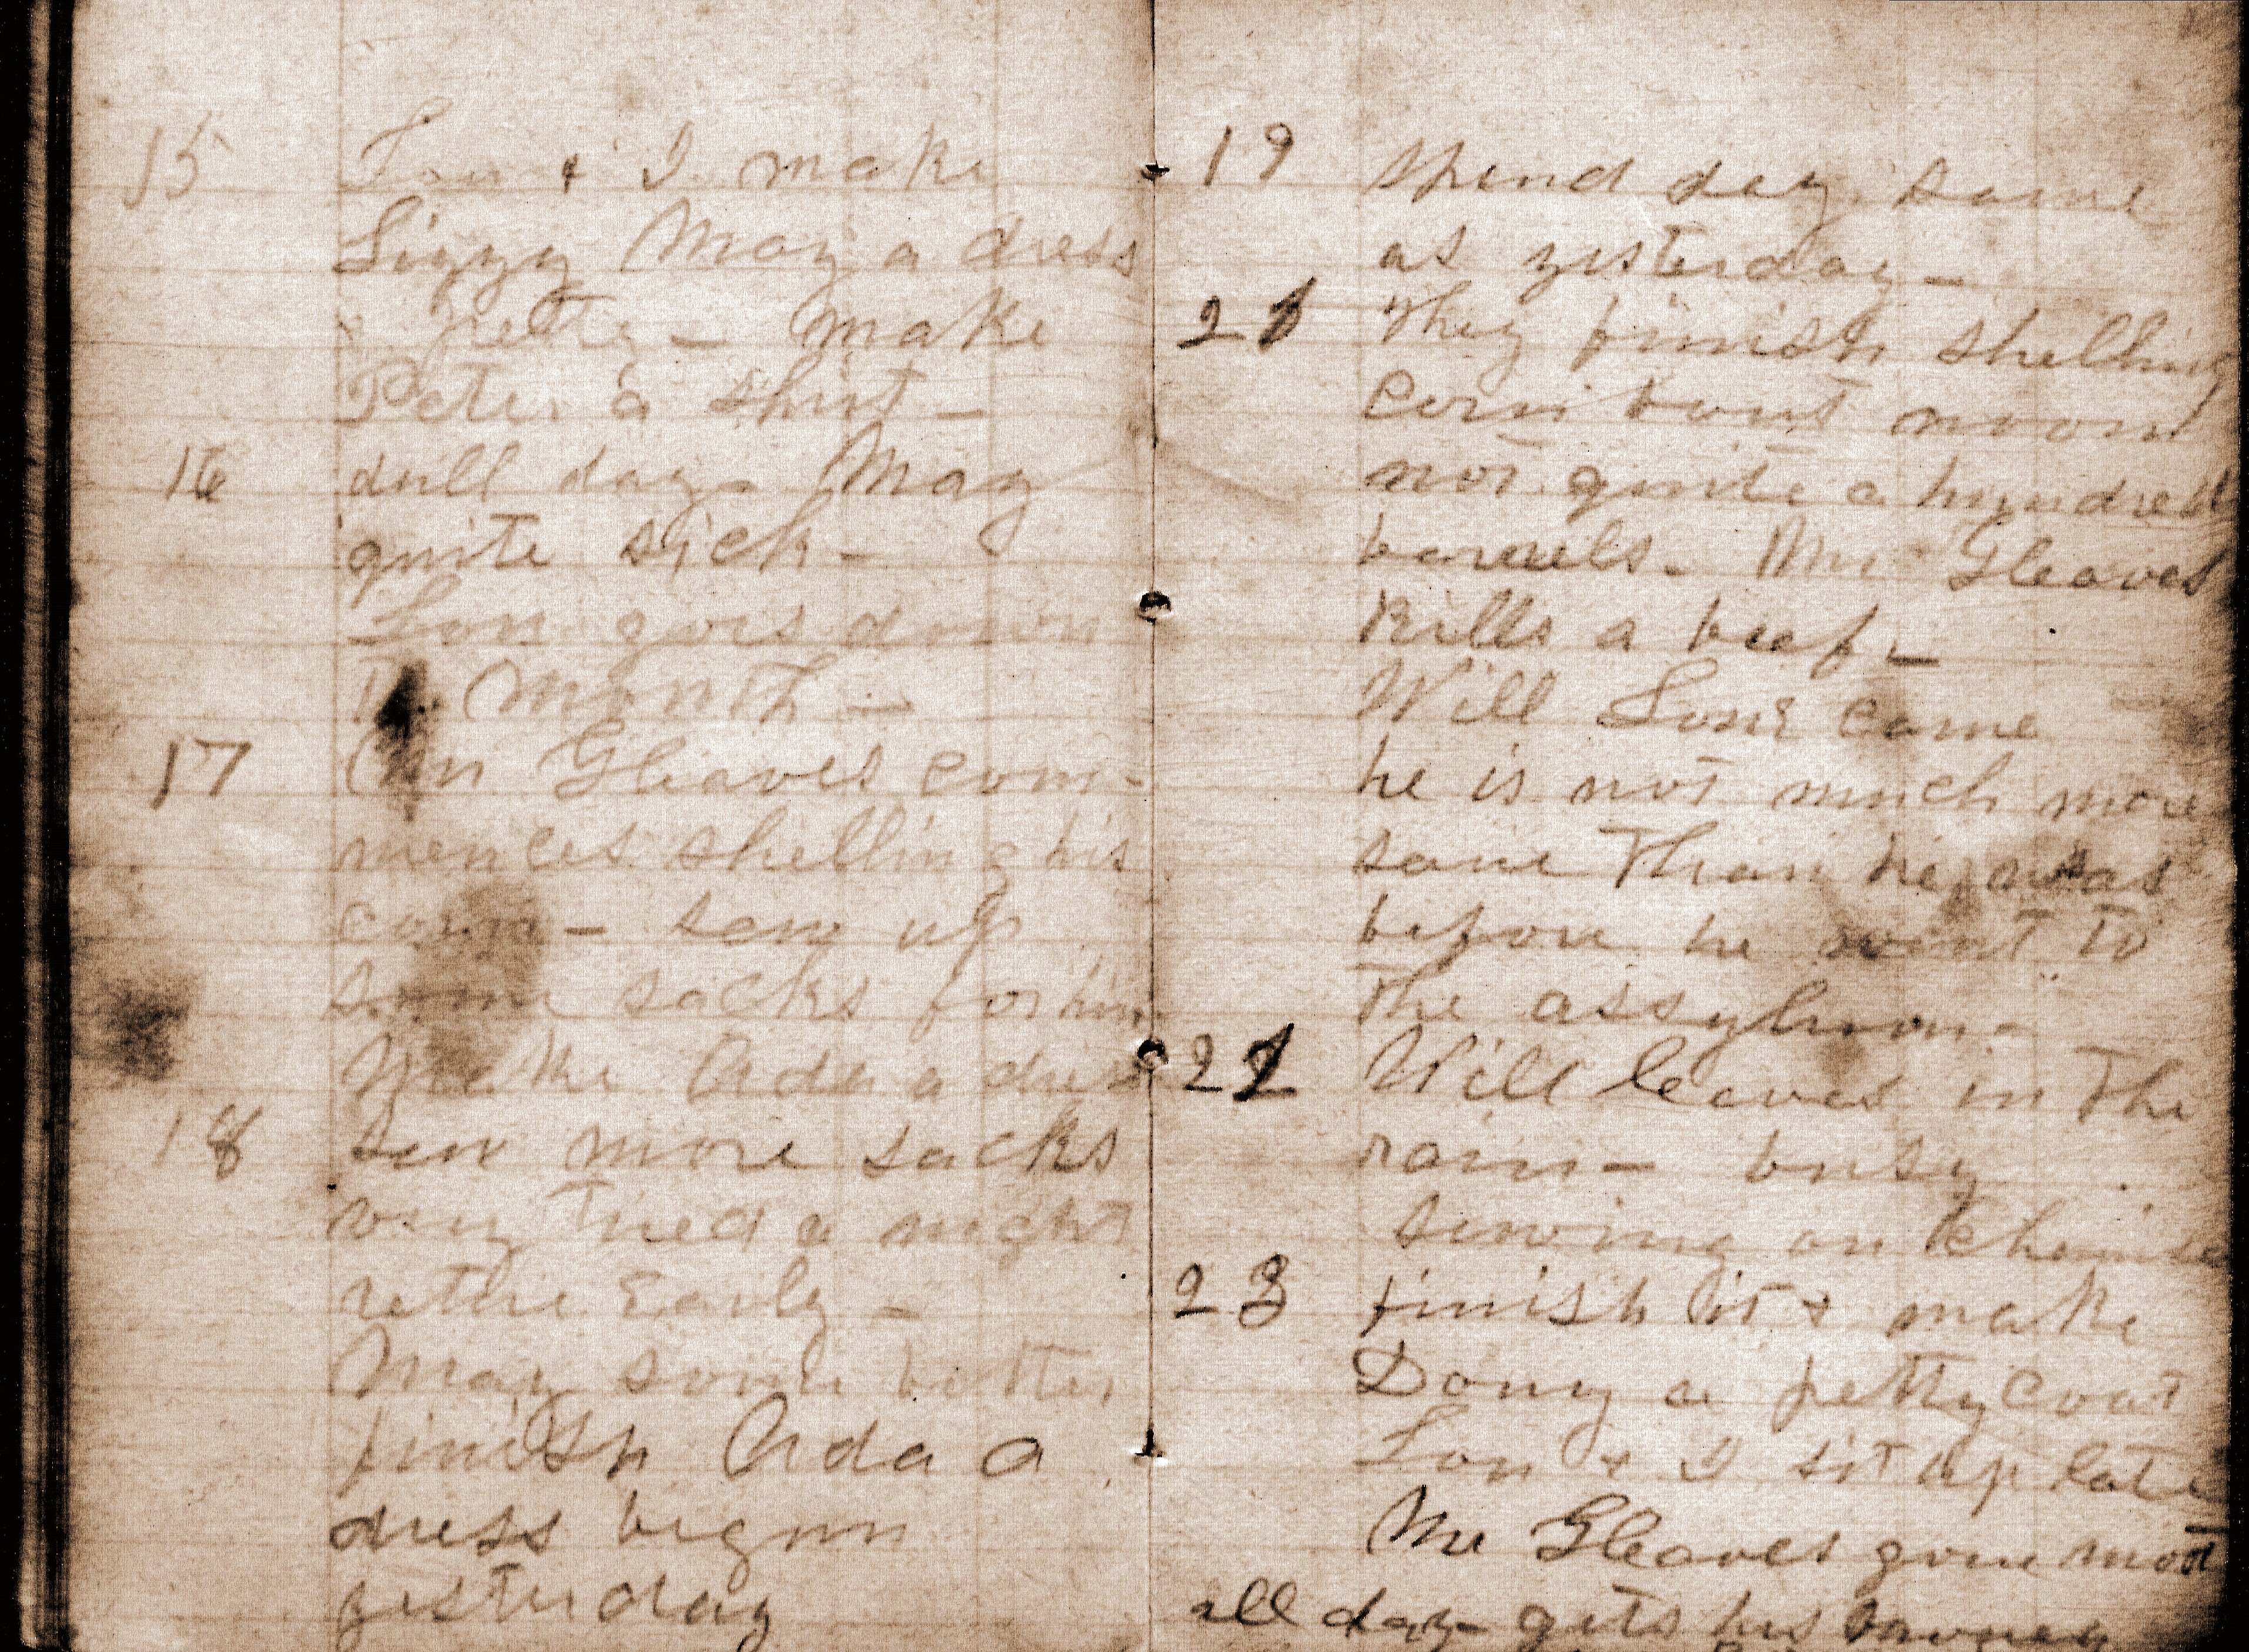 15 Lon & I make
Lizzy May a dress
& petty - make
Peter a shirt -
16 dull day. May
quite sick -
Lon goes down
month -
17 Mr Gleaves com-
mences shelling his
corn - sew up
some sacks for him
Make Ada a dress
18 sew more sacks
very tired a night
retire Early -
May some better
finish Ada a
dress begun
yesterday
19 Spend day same
as yisterday -
21 They finish shelling
corn bout noon
not quite a hundred
barrels. Mr Gleaves
kills a beef -
Will Love came
he is not much more
sane Than he was
before he went to
The assylum -
22 Will leaves in The
rain - busy
sewing on Chemise
23 finish it & make
Dony a pettycoat
Lon & I sit up late
Mr Gleaves gone most
all day - gets his